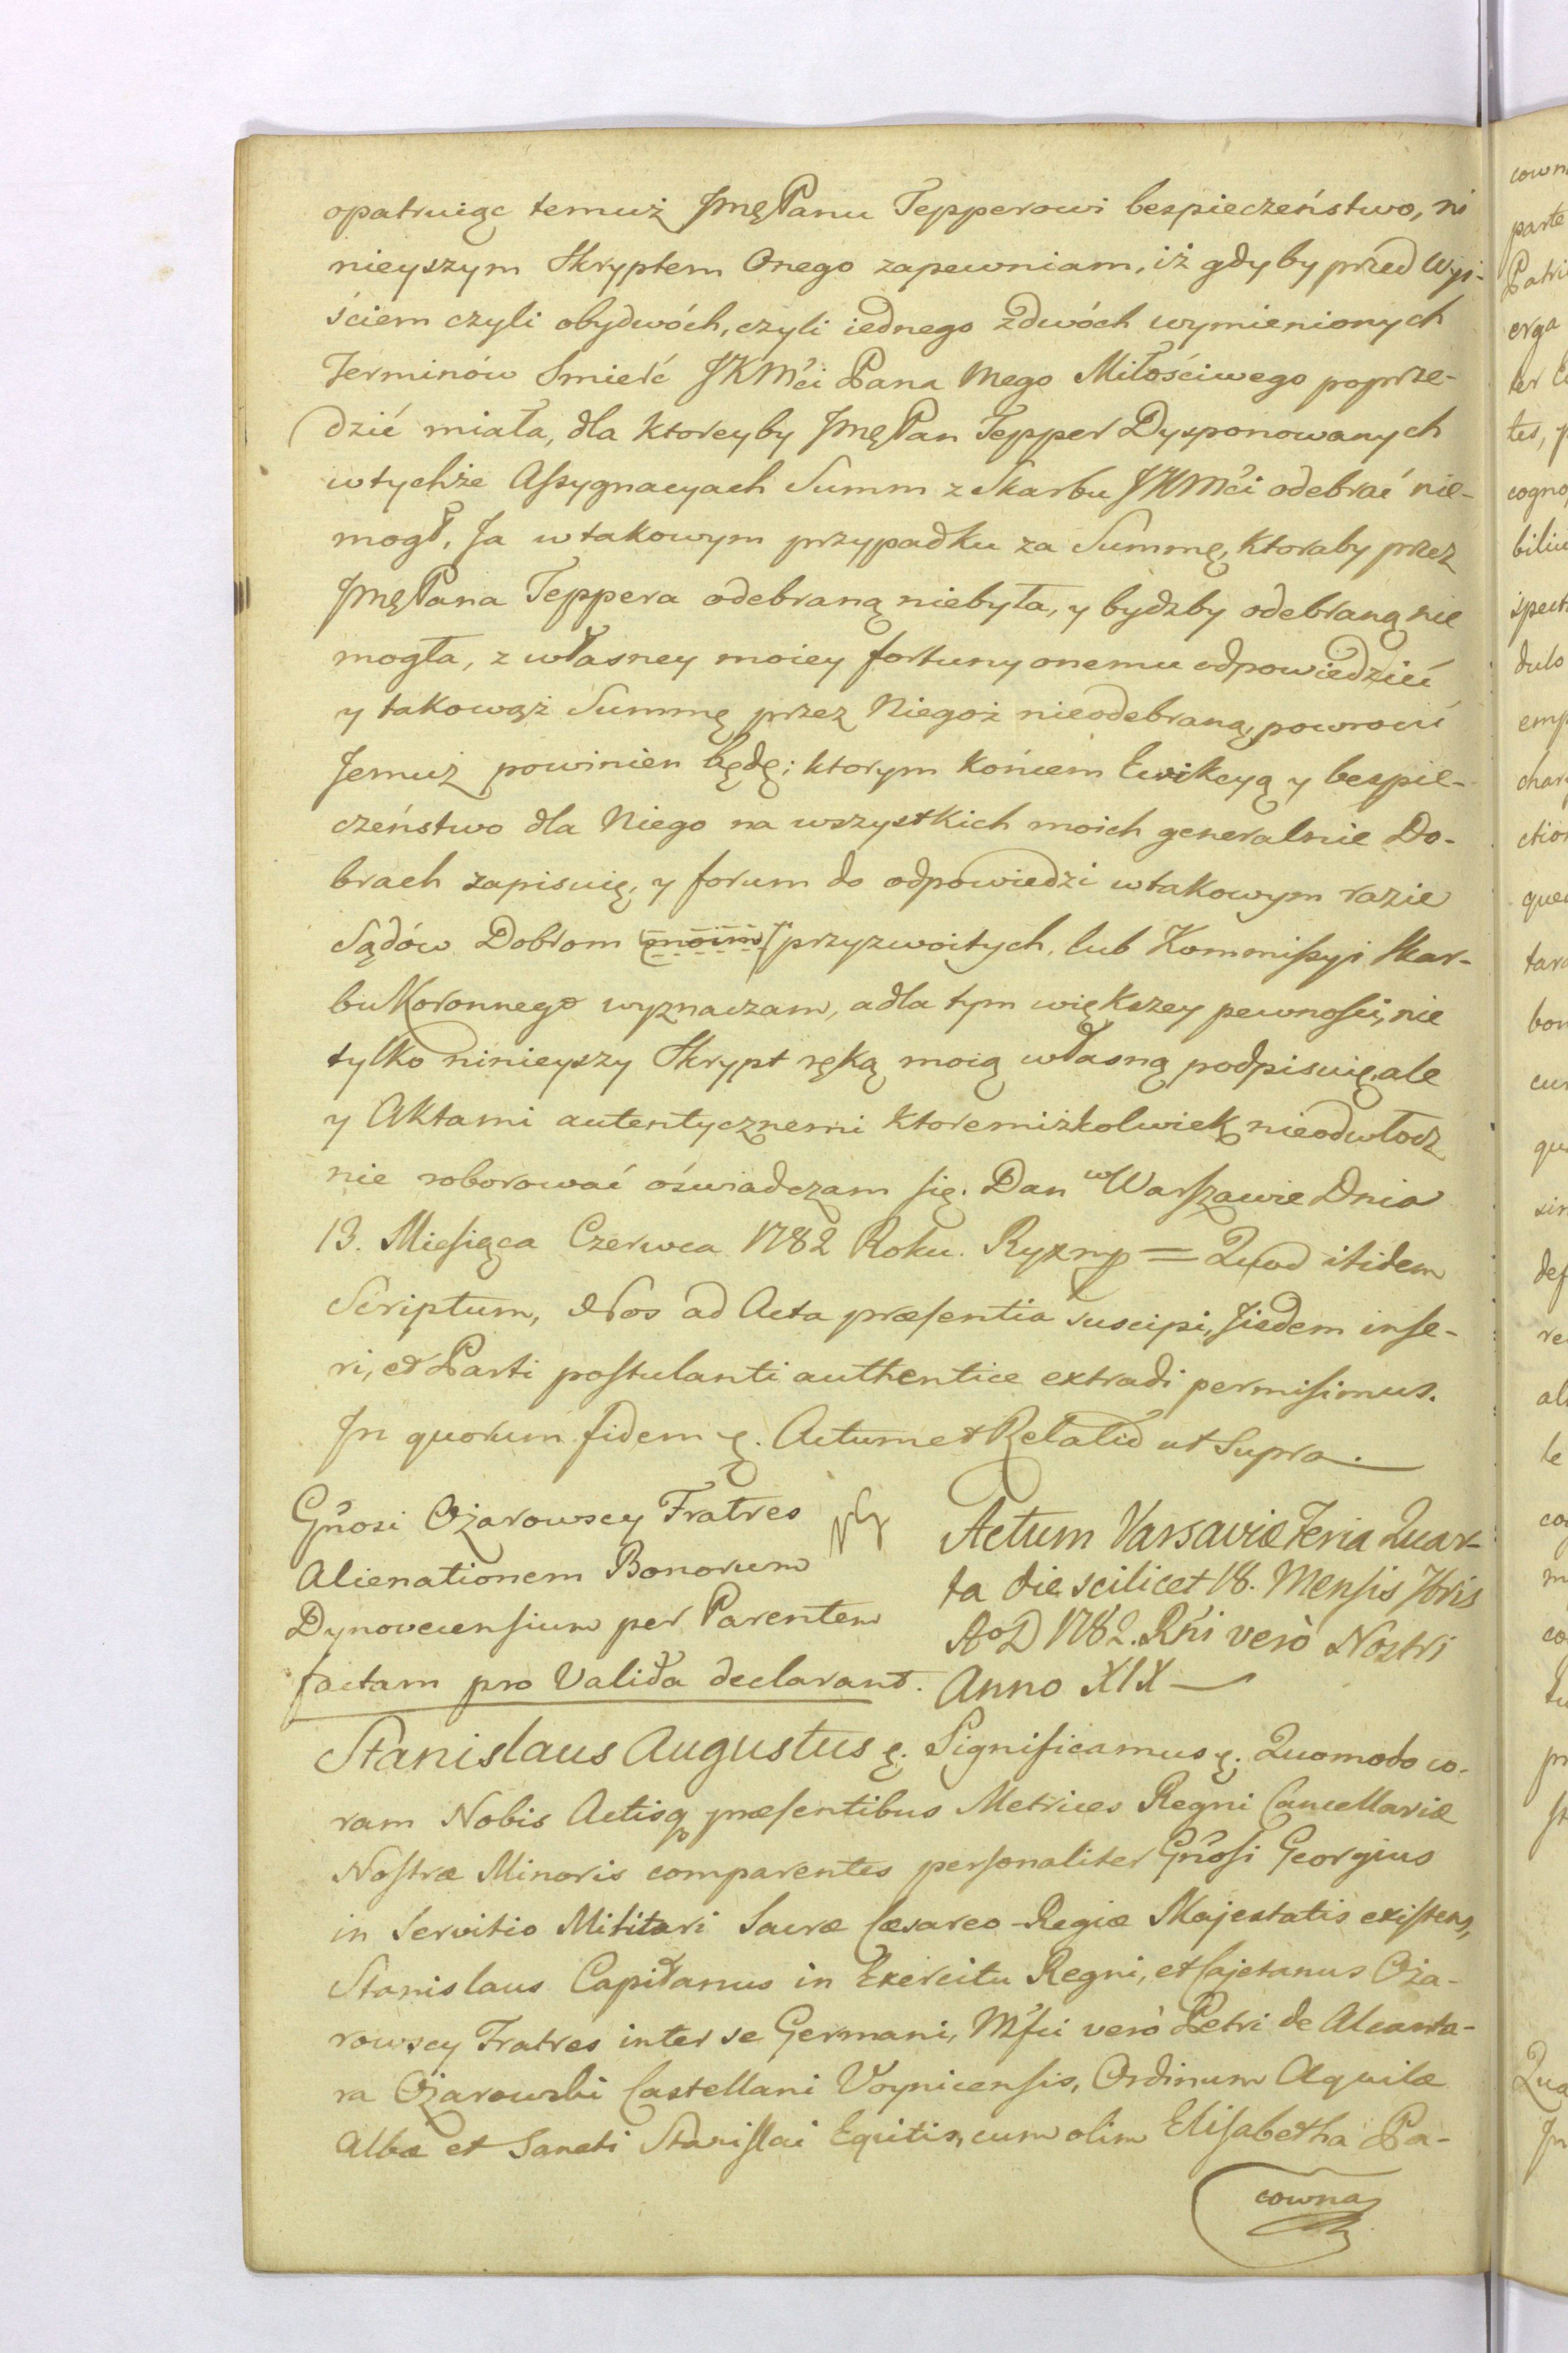 opatruiąc temuż JmęPanu Tepperowi bespieczeństwo, ni
nieyszym Skryptem Onego zapewniam, iż gdyby przed Wyi-
ściem czyli obydwóch, czyli iednego zdwóch wymienionych
Terminów Smierć JKMći Pana Mego Miłościwego poprze-
dzić miała, dla ktoreyby JmęPan Tepper Dysponowanych
wtychże Assygnacyach Summ z Skarbu JKMći odebrać nie-
mogł, Ja wtakowym przypadku za Summę, ktoraby przez
JmęPana Teppera odebraną niebyła, y bydzby odebraną nie
mogła, z własney moiey fortuny onemu odpowiedzieć
y takowąż Summę przez Niegoż nieodebraną, powrocić
Jemuż powinien będę; ktorym końcem Ewikcyą y bespie-
czeństwo dla Niego na wszystkich moich generalnie Do-
brach zapisuię, y forum do odpowiedzi wtakowym razie
Sądów Dobrom (moim) przyzwoitych, lub Kommissyi Skar-
bu Koronnego wyznaczam, adla tym większey pewności, nie
tylko ninieyszy Skrypt ręką moią własną podpisuię, ale
y Aktami autentycznemi ktoremiżkolwiek nieodwłocz
nie roborować oświadczam się. Dan w Warszawie Dnia
13. Miesiąca Czerwca 1782 Roku. Ryx mp = Quod itidem
Scriptum, Nos ad Acta præsentia suscipi, Jisdem inse-
ri, et Parti postulanti authentice extradi permisimus.
In quorum fidem ę. Actum et Relatio ut Supra.
Gnosi Ożarowscy Fratres
Alienationem Bonorum
Dynovecensium per Parentem
factam pro Valida declarant.
Actum Varsaviæ Feria Quar-
ta die scilicet 18. Mensis 7bris
AoD 1782. Rńi verò Nostri
Anno XIX
Stanislaus Augustus ę. Significamus ę. Quomodo co-
ram Nobis Actisq præsentibus Metrices Regni Cancellariæ
Nostræ Minoris comparentes personaliter Gnosi Georgius
in Servitio Militari Sacræ Cæsareo-Regiæ Majestatis existens,
Stanislaus Capitanus in Exercitu Regni, et Cajetanus Oża-
rowscy Fratres inter se Germani, Mfci verò Petri de Alcanta-
ra Ożarowski Castellani Voynicensis, Ordinum Aquilæ
Albæ et Sancti Stanislai Equitis, cum olim Elisabetha Pa-
cowna